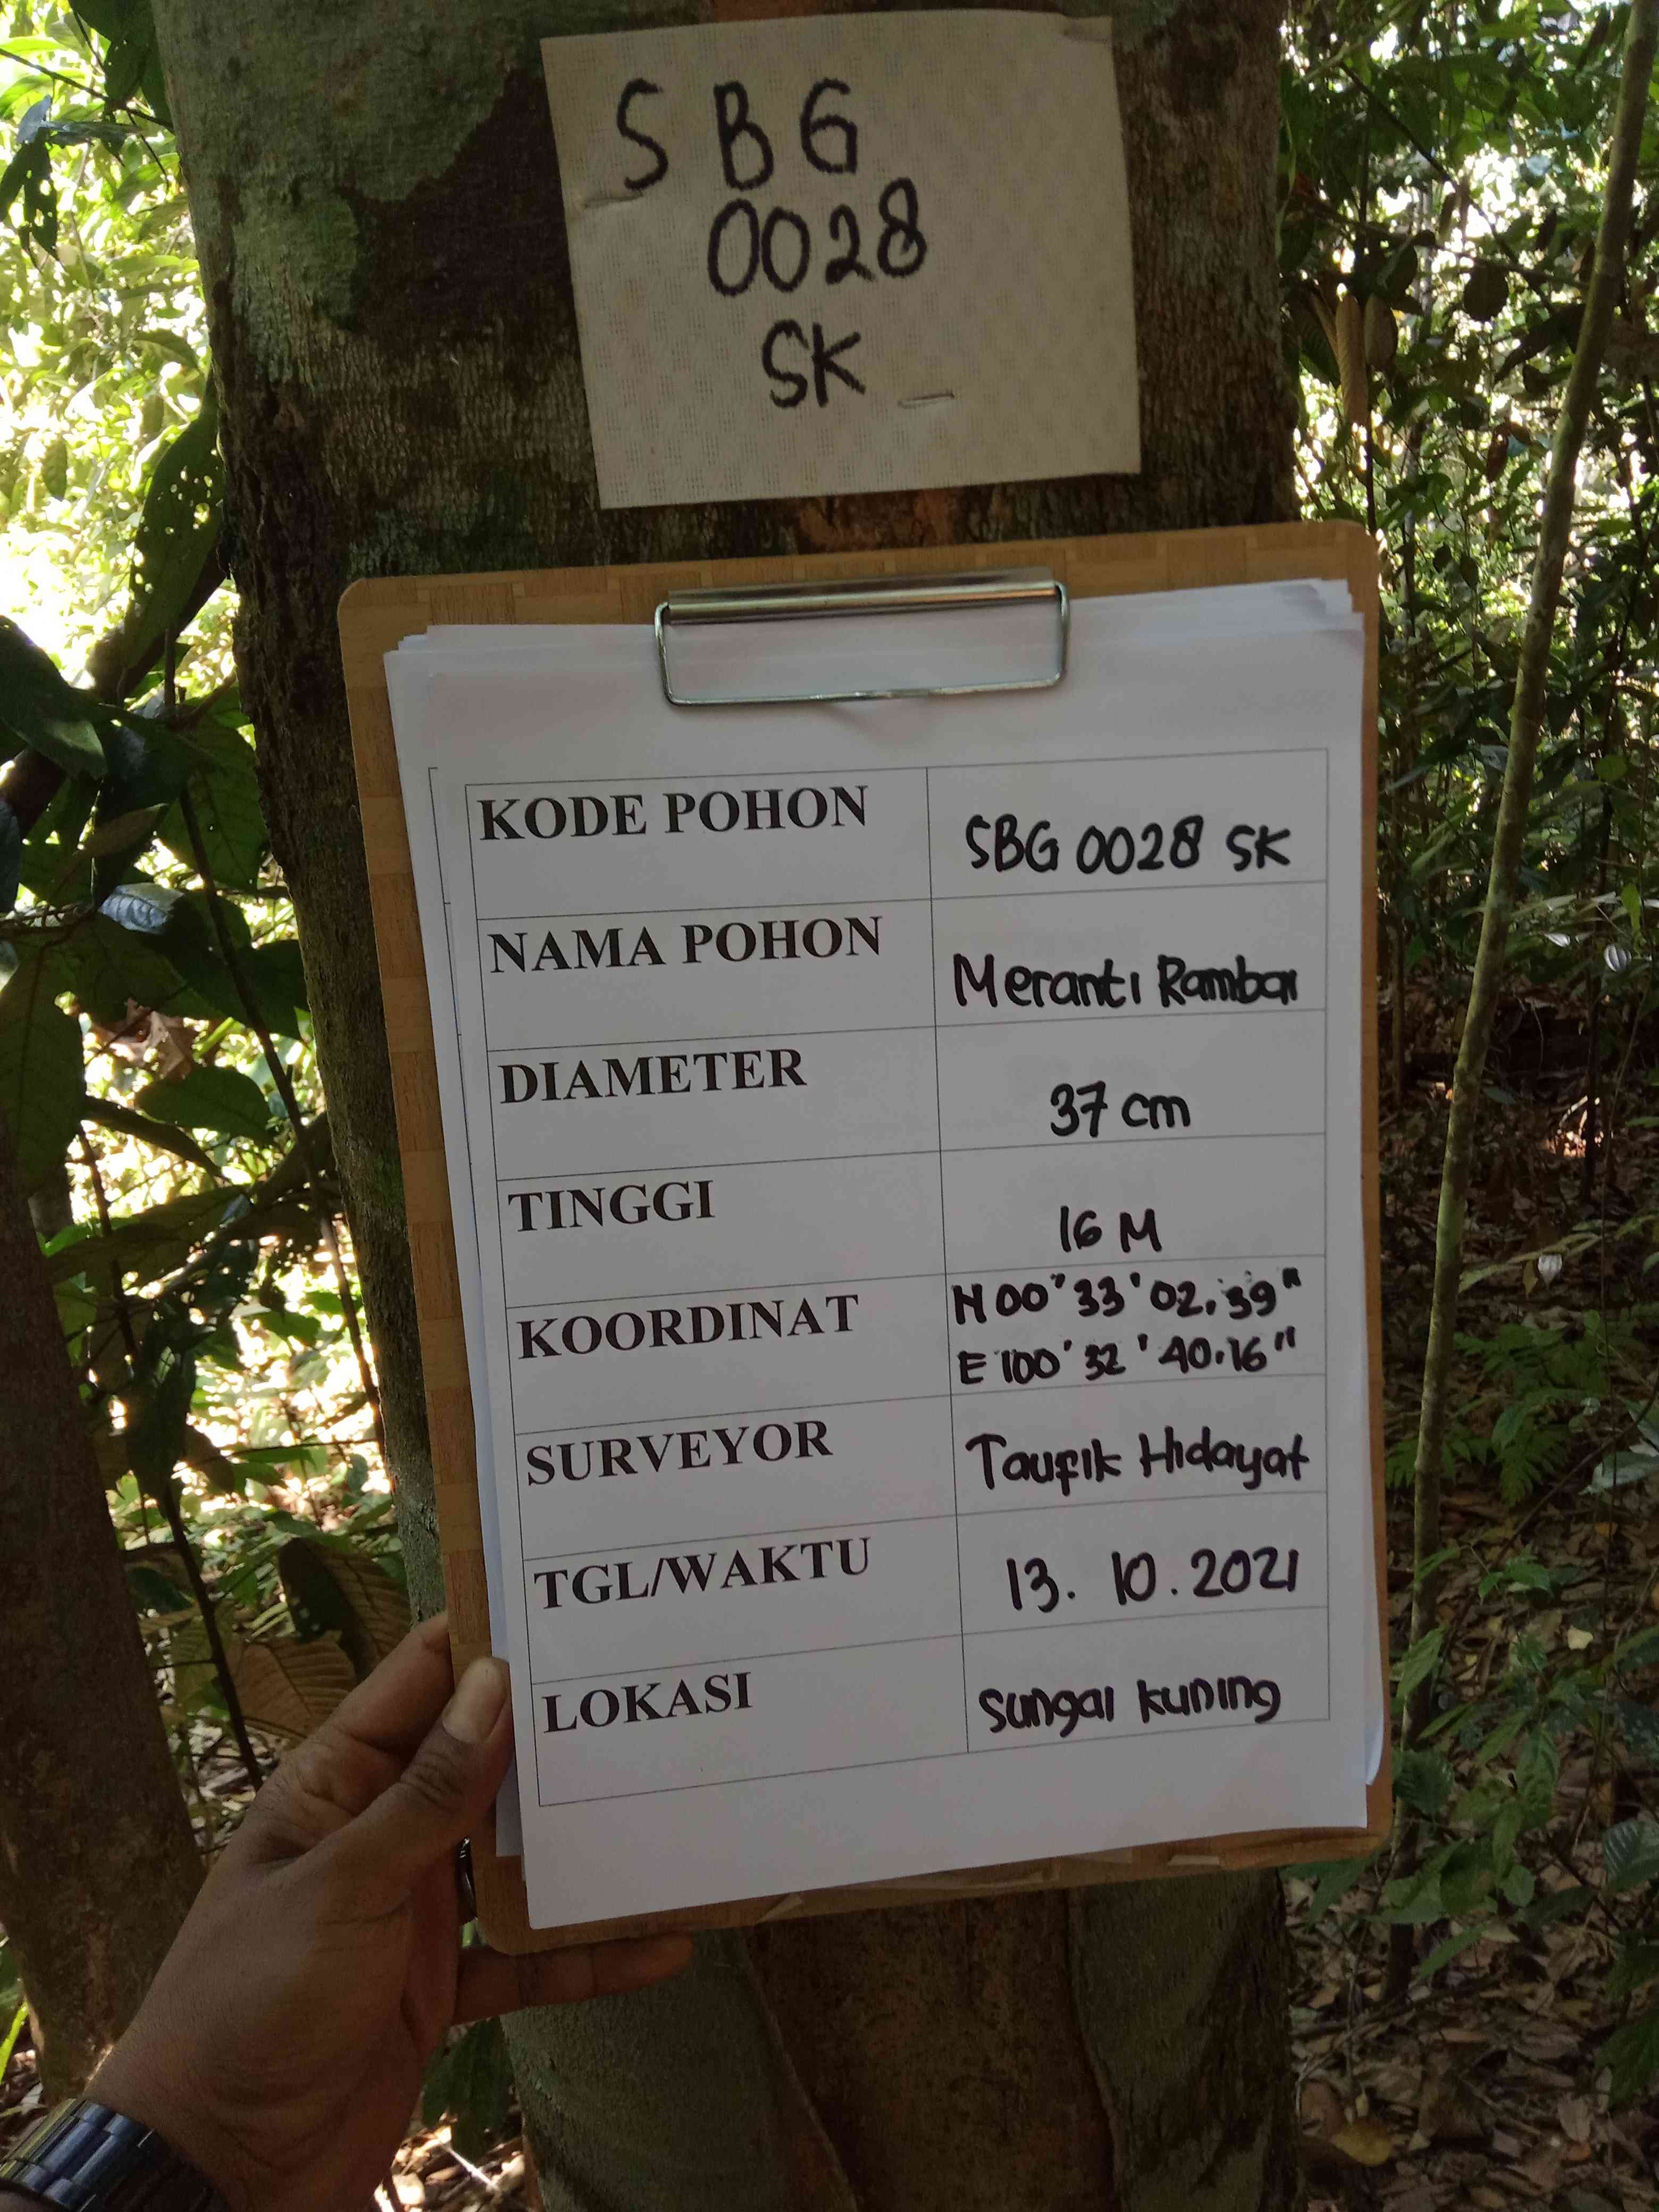 SBG
0028
SK
KODE POHON SBG 0028 SK
NAMA POHON Meranti Rambai
DIAMETER 37 cm
TINGGI 16 M
KOORDINAT N 00°33'02.39"
E 100'32'40.16"
SURVEYOR Taufik Hidayat
TGL/WAKTU 13. 10. 2021
LOKASI Sungai kuning